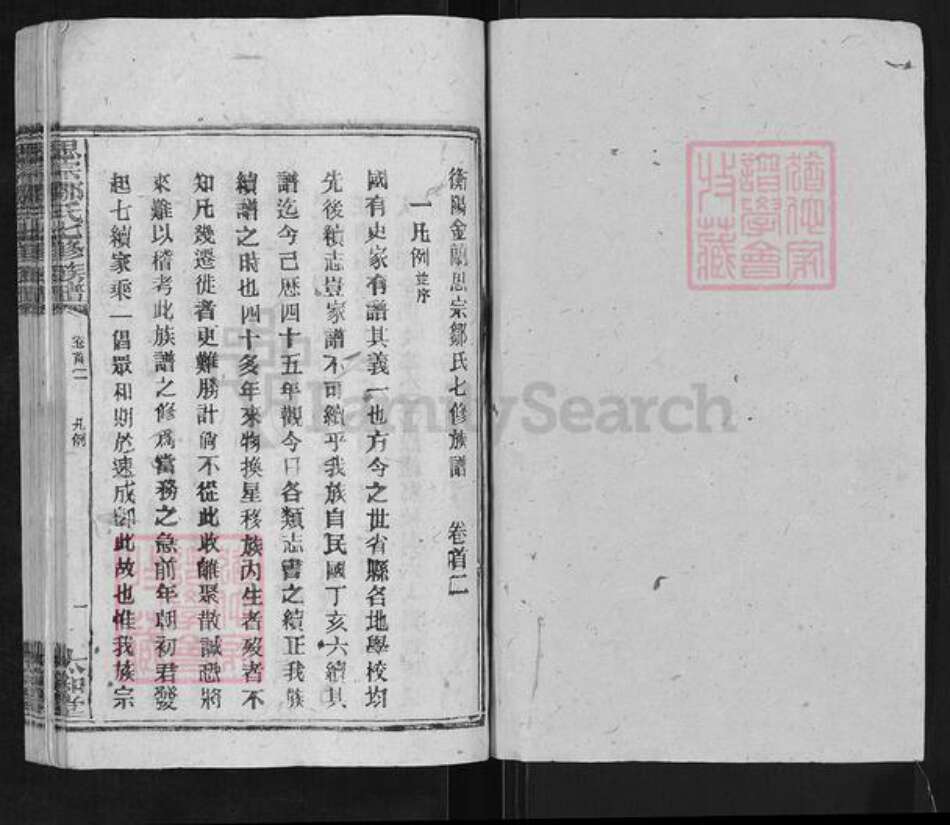 衡陽金蘭思宗鄒氏七修族譜 卷首二
一凡例並序
國有史家有譜其義一也方今之世省縣各地學校均
先後續志豈家譜不可續乎我族自民國丁亥六續其
譜迄今已歷四十五年觀今日各類志書之續正我族
續譜之時也四十多年來物換星移族內生者歿者不
知凡幾遷徙者更難勝計倘不從此收離聚散誠恐將
來難以稽考此族譜之修為當務之急前年朝初君發
起七續家乘一倡眾和期於速成御此故也惟我族宗
思宗鄒氏七修族譜
卷首二
凡例
一
FamilySearch
譜學會
收藏